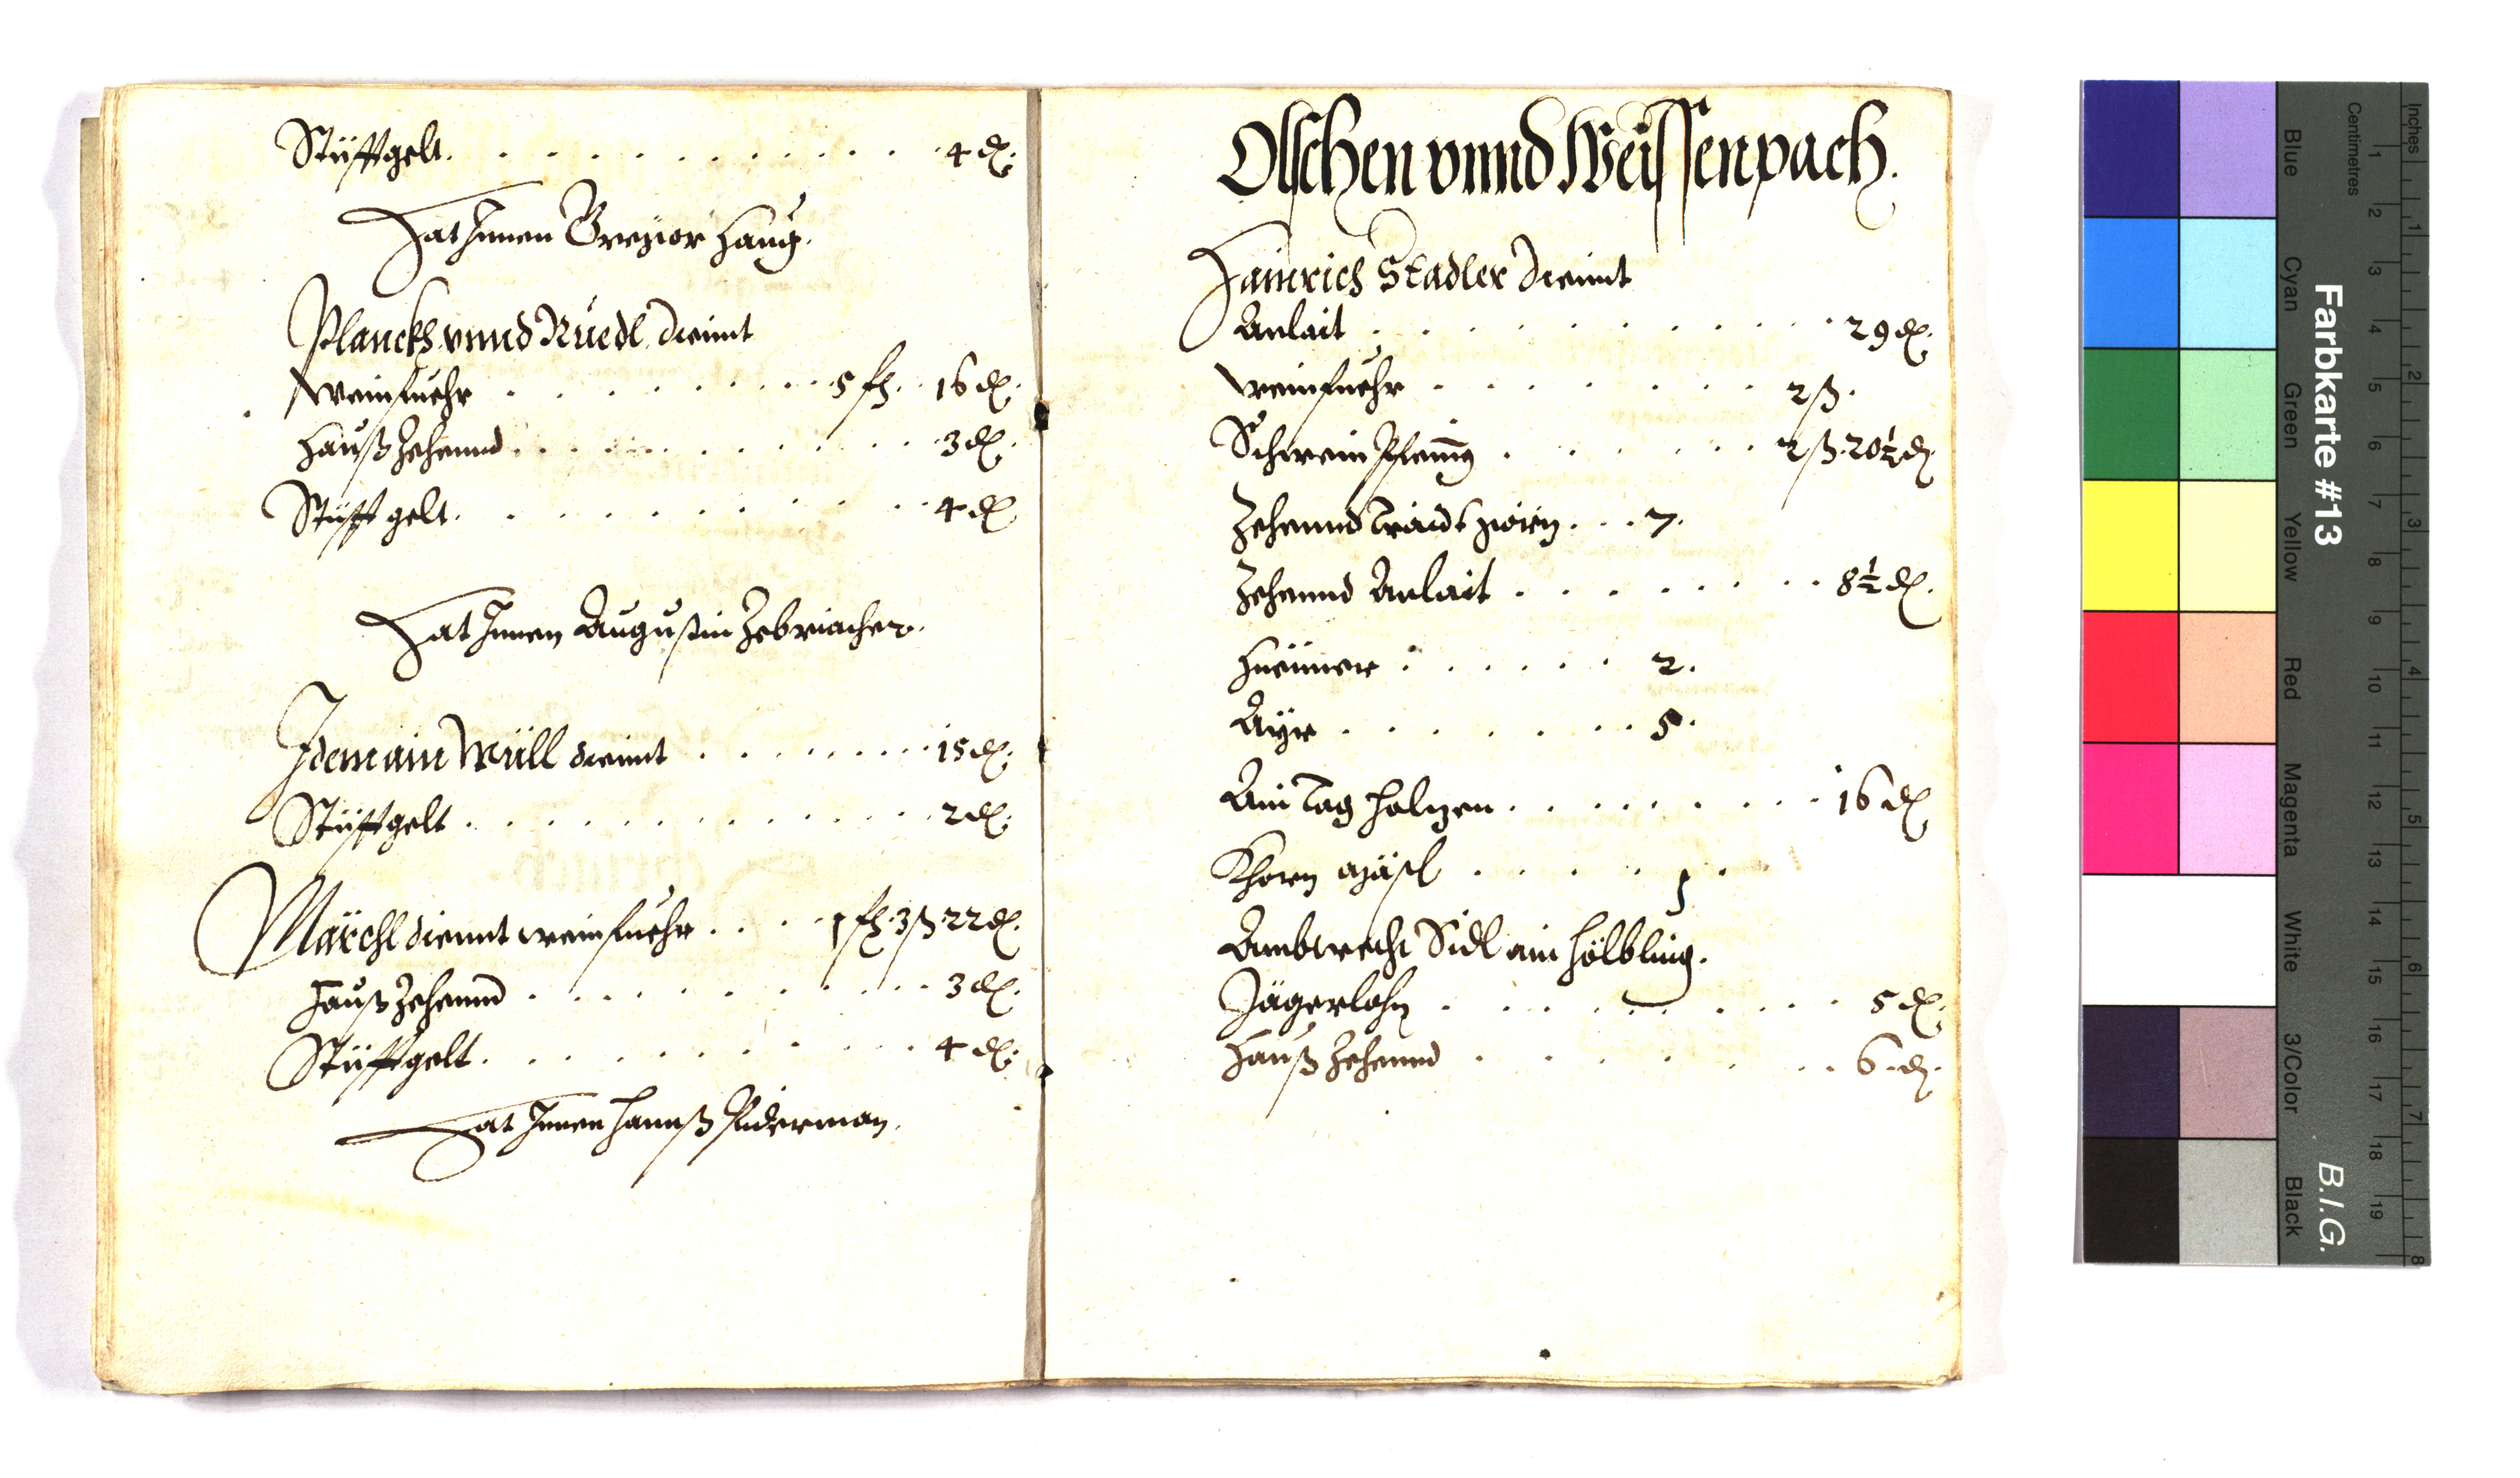 Stüfftgelt . . . . . . . . . . . 4 d.
Hat Innen Gregior Haug.
Planckh vnnd Rüedl diennt
Weinfuehr . . . . . . . . 5 fl. 16 d.
Hauß Zehennd . . . . . . . . . 3 d.
Stüfft gelt . . . . . . . . . . 4 d
Hat Innen Augustin Zebriacher.
Idem ain Müll diennt . . . . . . . 15 d.
Stüfftgelt . . . . . . . . . . . 2 d.
Märchl diennt weinfuehr . . . 1 fl. 3 ß 22 d.
Hauß Zehennd . . . . . . . . . 3 d.
Stüfftgelt . . . . . . . . . . 4 d.
Hat Innen Hannß
Olschen vnnd Weissenpach.
Hainrich Stadler diennt
Anlait . . . . . . . . . . 29 d.
Weinfuehr . . . . . . . 2 ß.
Schwein Pfening . . . . . . 2 ß. 20½ d.
Zehennd Traidt . . . 7.
Zehennd Anlait . . . . . . . . 8½ d.
Hüenner . . . . . . 2.
Ayr . . . . . . . . 5.
Ain Tag holzen . . . . . . . . 16 d
Khorn mäsl . . . . . 1.
Ambtrecht Sidl ain hölbling.
Jägerlohn . . . . . . . . . 5 d.
Hauß Zehennd . . . . . . . 6 d.
Farbkarte #13
B.I.G.
Inches
Centimetres
Blue
Cyan
Green
Yellow
Red
Magenta
White
3/Color
Black
1
2
3
4
5
6
7
8
9
10
11
12
13
14
15
16
17
18
19
1
2
3
4
5
6
7
8